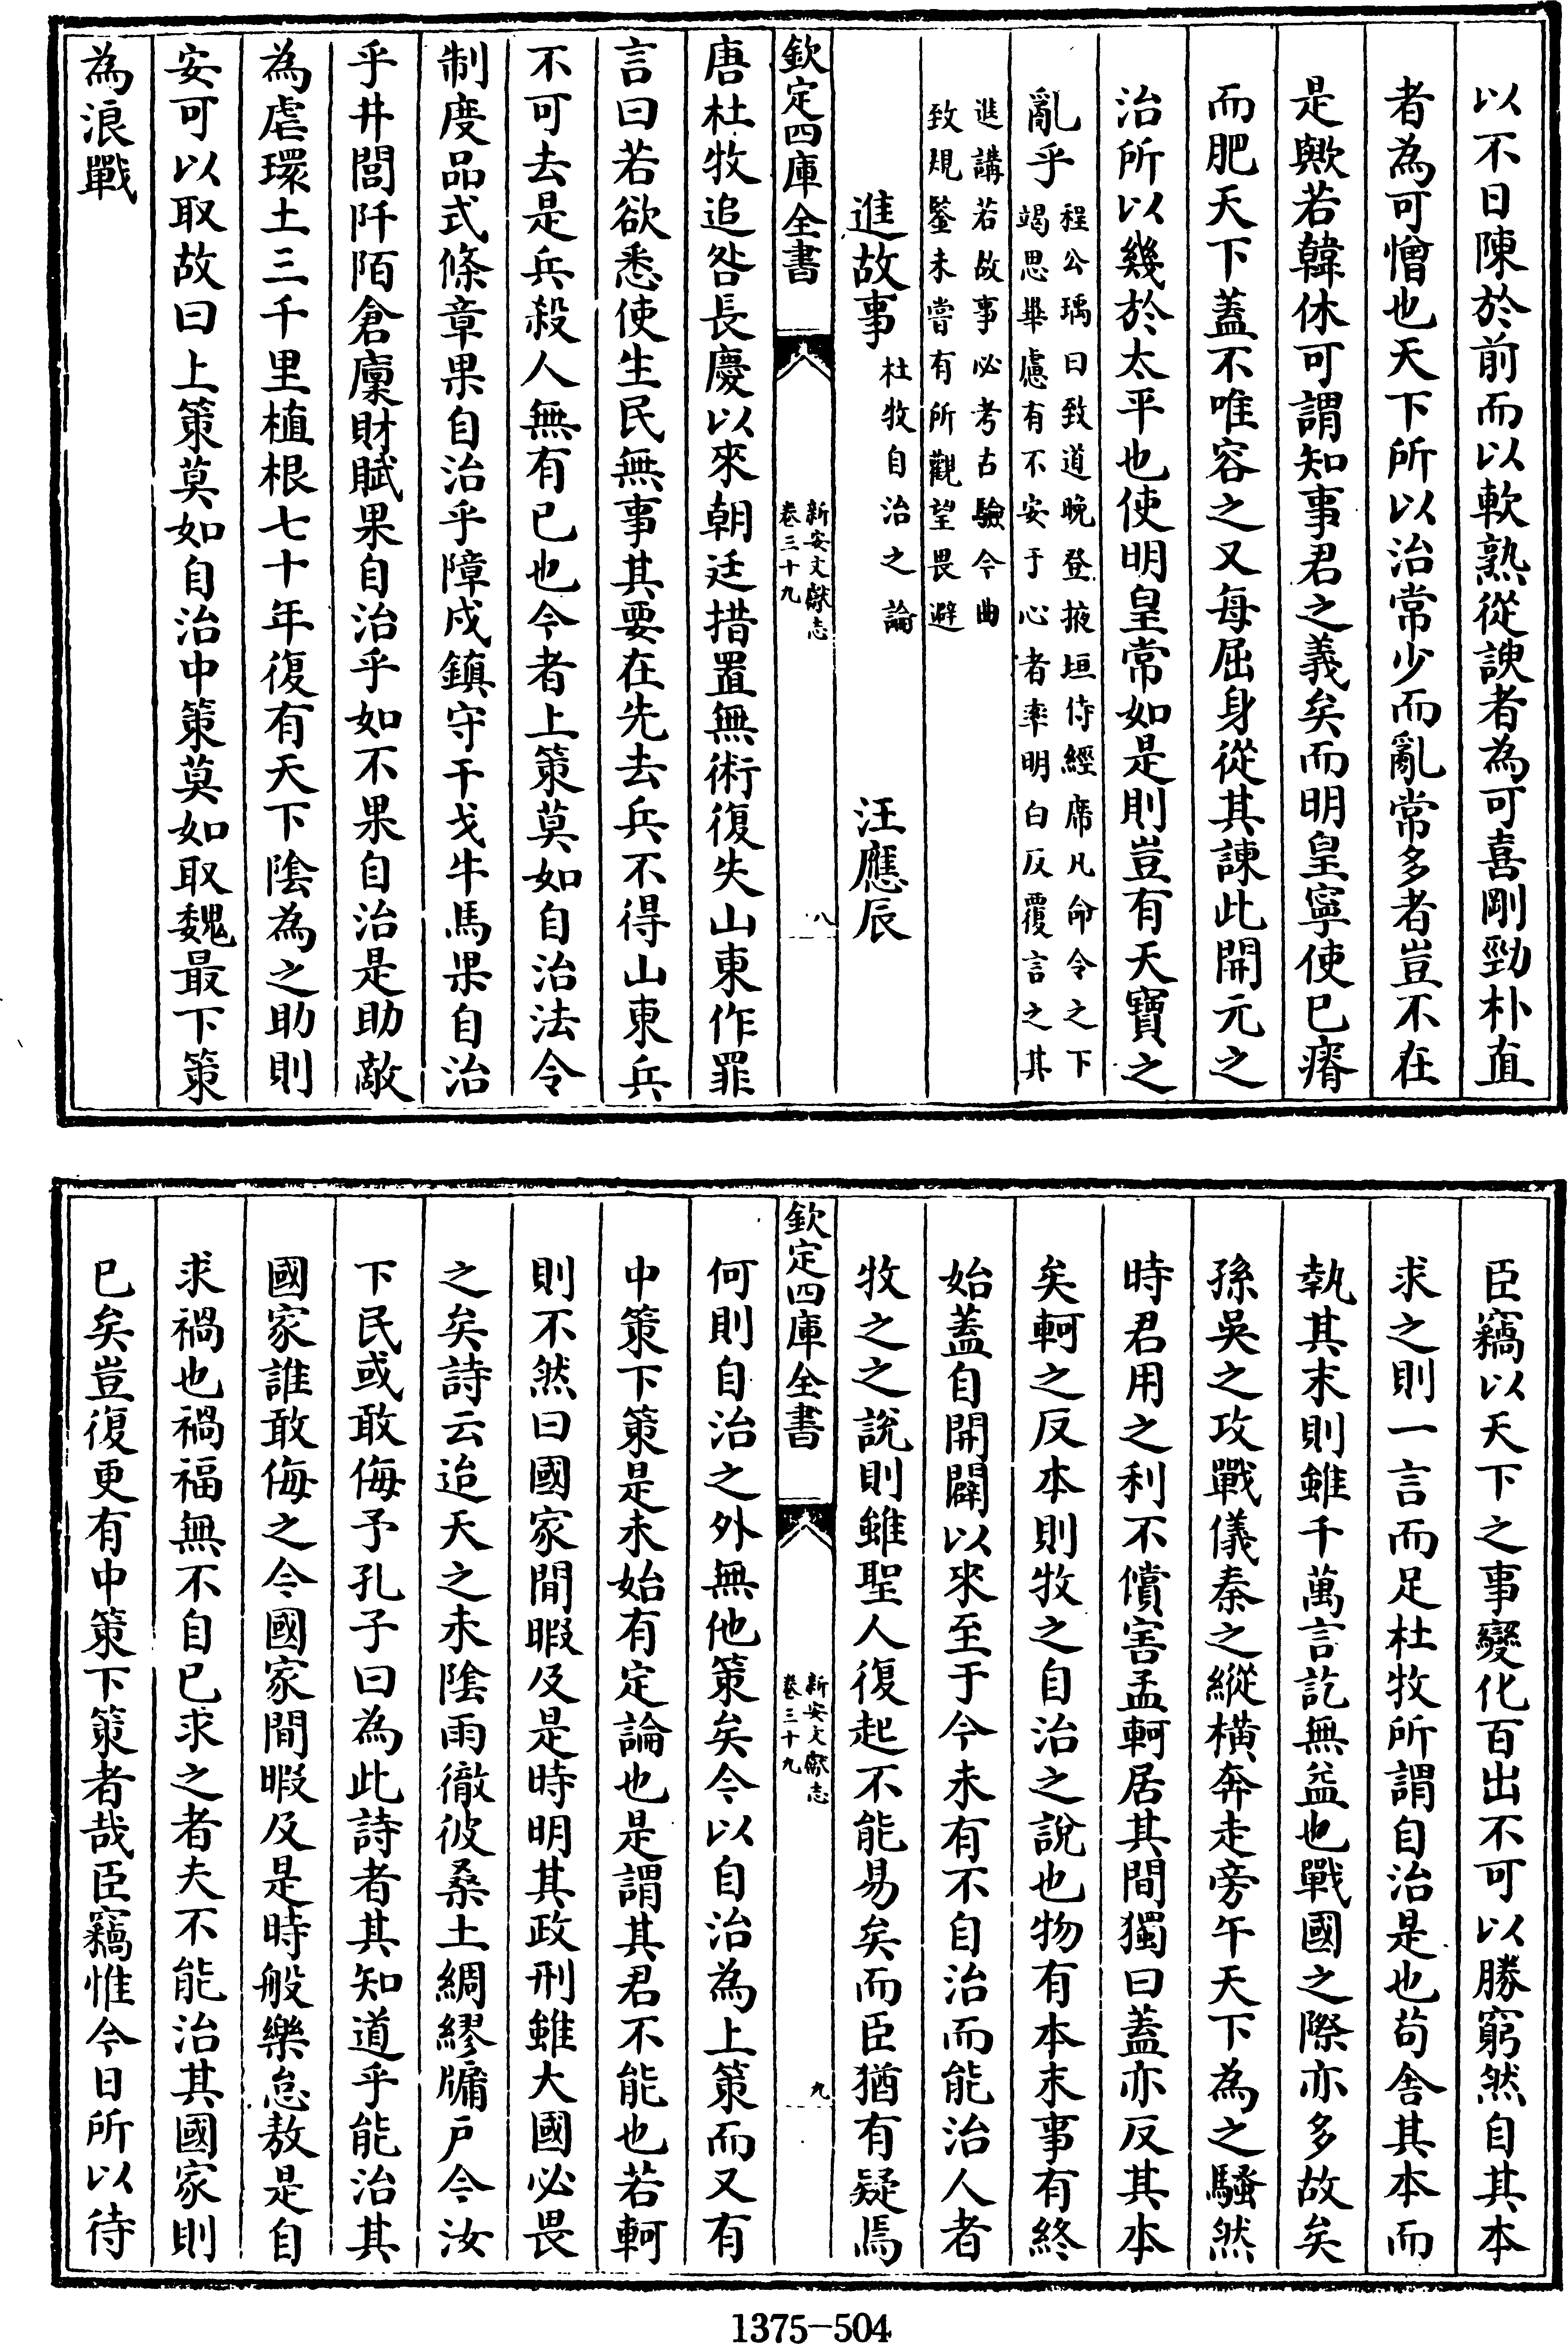 以不日陳於前而以軟熟從諛者為可喜剛勁朴直
者為可憎也天下所以治常少而亂常多者豈不在
是歟若韓休可謂知事君之義矣而明皇寧使已瘠
而肥天下蓋不唯容之又每屈身從其諫此開元之
治所以幾於太平也使明皇常如是則豈有天寶之
亂乎
程公瑀曰致道晚登掖垣侍經席凡命令之下
竭思畢慮有不安于心者率明白反覆言之其
進講若故事必考古驗今曲
致規鑒未嘗有所觀望畏避
進故事 杜牧自治之論 汪應辰
欽定四庫全書
新安文獻志
卷三十九
八
唐杜牧追咎長慶以來朝廷措置無術復失山東作罪
言曰若欲悉使生民無事其要在先去兵不得山東兵
不可去是兵殺人無有已也今者上策莫如自治法令
制度品式條章果自治乎障戍鎮守干戈牛馬果自治
乎井閭阡陌倉廩財賦果自治乎如不果自治是助敵
為虐環土三千里植根七十年復有天下陰為之助則
安可以取故曰上策莫如自治中策莫如取魏最下策
為浪戰
臣竊以天下之事變化百出不可以勝窮然自其本
求之則一言而足杜牧所謂自治是也苟舍其本而
執其末則雖千萬言訖無益也戰國之際亦多故矣
孫吳之攻戰儀秦之縱橫奔走旁午天下為之騷然
時君用之利不償害孟軻居其間獨曰蓋亦反其本
矣軻之反本則牧之自治之說也物有本末事有終
始蓋自開闢以來至于今未有不自治而能治人者
牧之之說則雖聖人復起不能易矣而臣猶有疑焉
欽定四庫全書
新安文獻志
卷三十九
九
何則自治之外無他策矣今以自治為上策而又有
中策下策是未始有定論也是謂其君不能也若軻
則不然曰國家閒暇及是時明其政刑雖大國必畏
之矣詩云迨天之未陰雨徹彼桑土綢繆牖戶今汝
下民或敢侮予孔子曰為此詩者其知道乎能治其
國家誰敢侮之今國家間暇及是時般樂怠敖是自
求禍也禍福無不自已求之者夫不能治其國家則
已矣豈復更有中策下策者哉臣竊惟今日所以待
1375-504